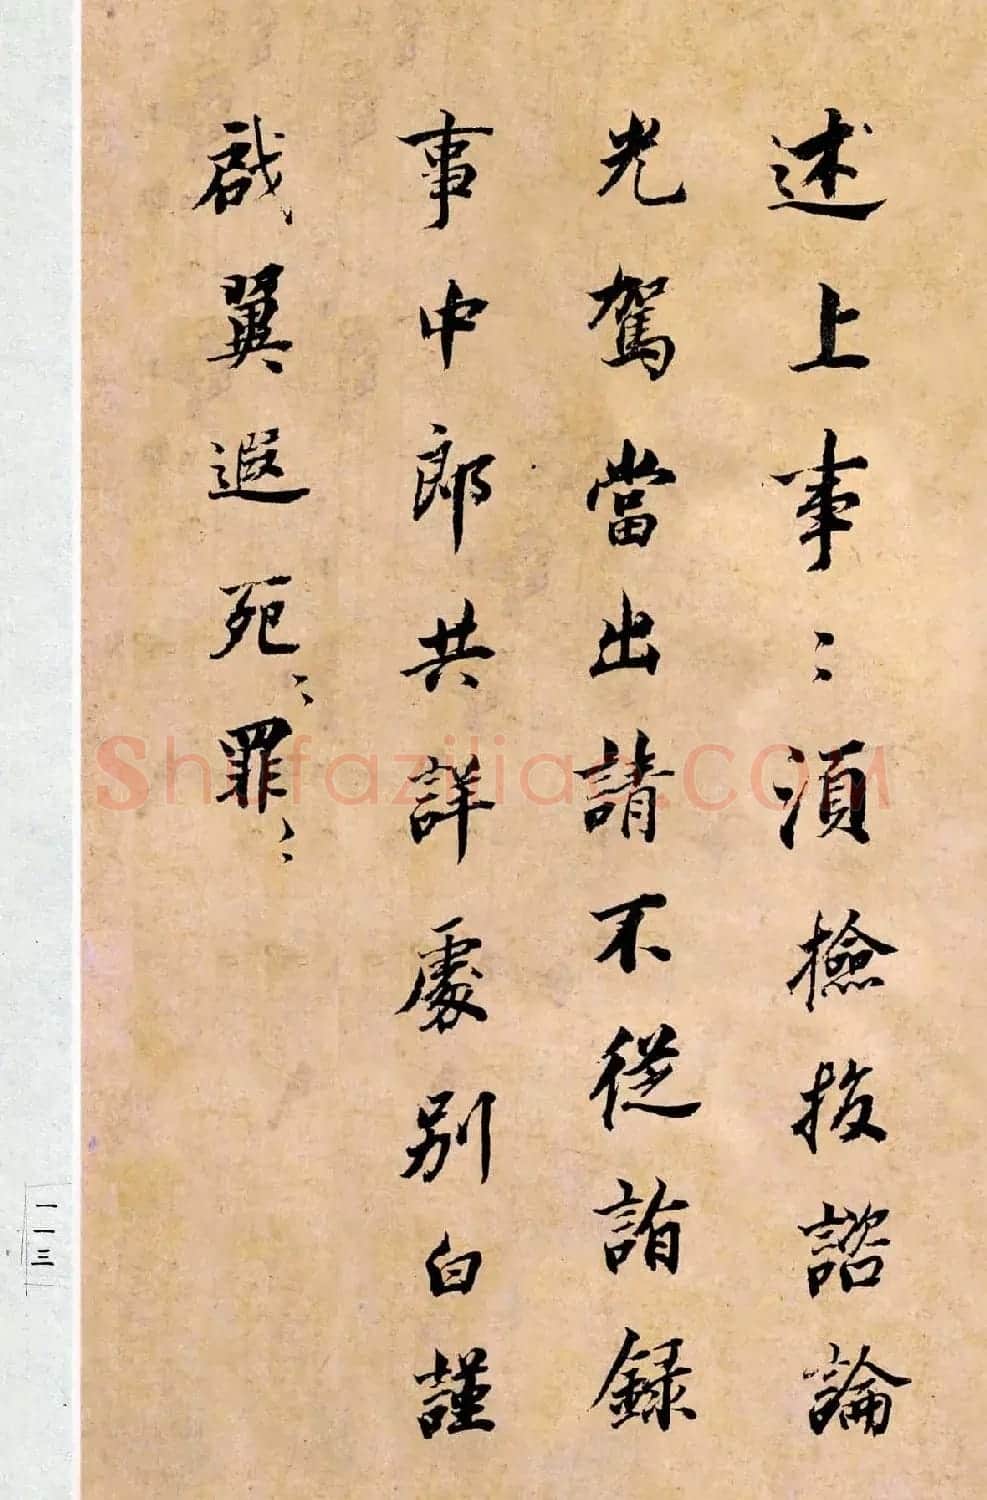 述上事〻須檢校諮論
光駕當出請不從詣録
事中郎共詳處別白謹
啟翼遐死〻罪〻
一一三
Shufaziliao.COM